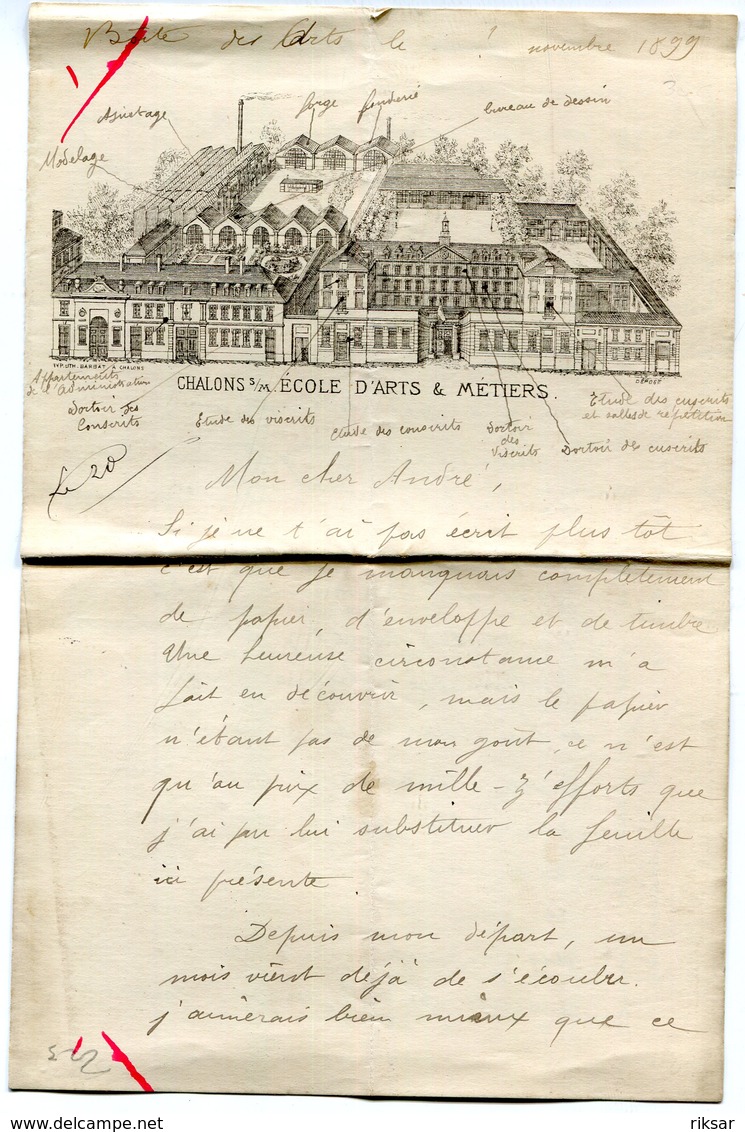 Boîte des Arts le novembre 1899
Ajustage
forge
fonderie
bureau de dessin
Modelage
IMP. LITH. BARBAT A CHALONS
DÉPOSÉ
CHALONS S/M. ÉCOLE D'ARTS & MÉTIERS.
Appartements
de l'Administration
Dortoir des
Conscrits
Etude des viscrits
Etude des conscrits
Dortoir
des
Viscrits
Dortoir des cuscrits
Etude des cuscrits
et salles de répétition
20
Mon cher André,
Si je ne t'ai pas écrit plus tôt
c'est que je manquais complètement
de papier, d'enveloppe et de timbre
Une heureuse circonstance m'a
fait en découvrir, mais le papier
n'étant pas de mon goût, ce n'est
qu'au prix de mille-z'efforts que
j'ai pu lui substituer la feuille
ici présente.
Depuis mon départ, un
mois vient déjà de s'écouler.
j'aimerais bien mieux que ce
riksar